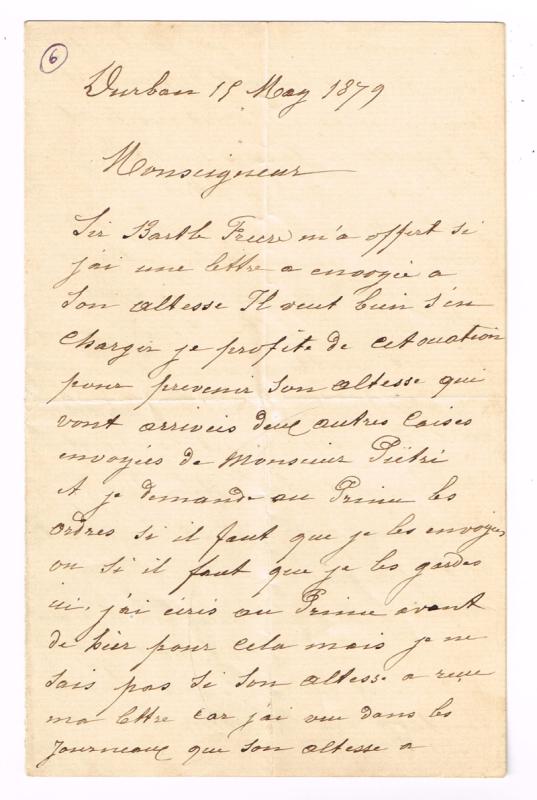 6
Durban 15 May 1879
Monseigneur
Sir Bartle Frere m'a offert si
j'ai une lettre a envoyée a
Son altesse Il veut bien s'en
charger je profite de cet ouation
pour prevenir Son altesse qui
vont arriveis deux autres Caises
envoyées de Monsieur Piétri
et je demande au Prince les
ordres si il faut que je les envoyes
ou si il faut que je les gardes
ici. j'ai ecris au Prince avant
de hier pour cela mais je ne
sais pas si Son altesse a reçue
ma lettre car j'ai vue dans les
Journeaux que Son altesse a